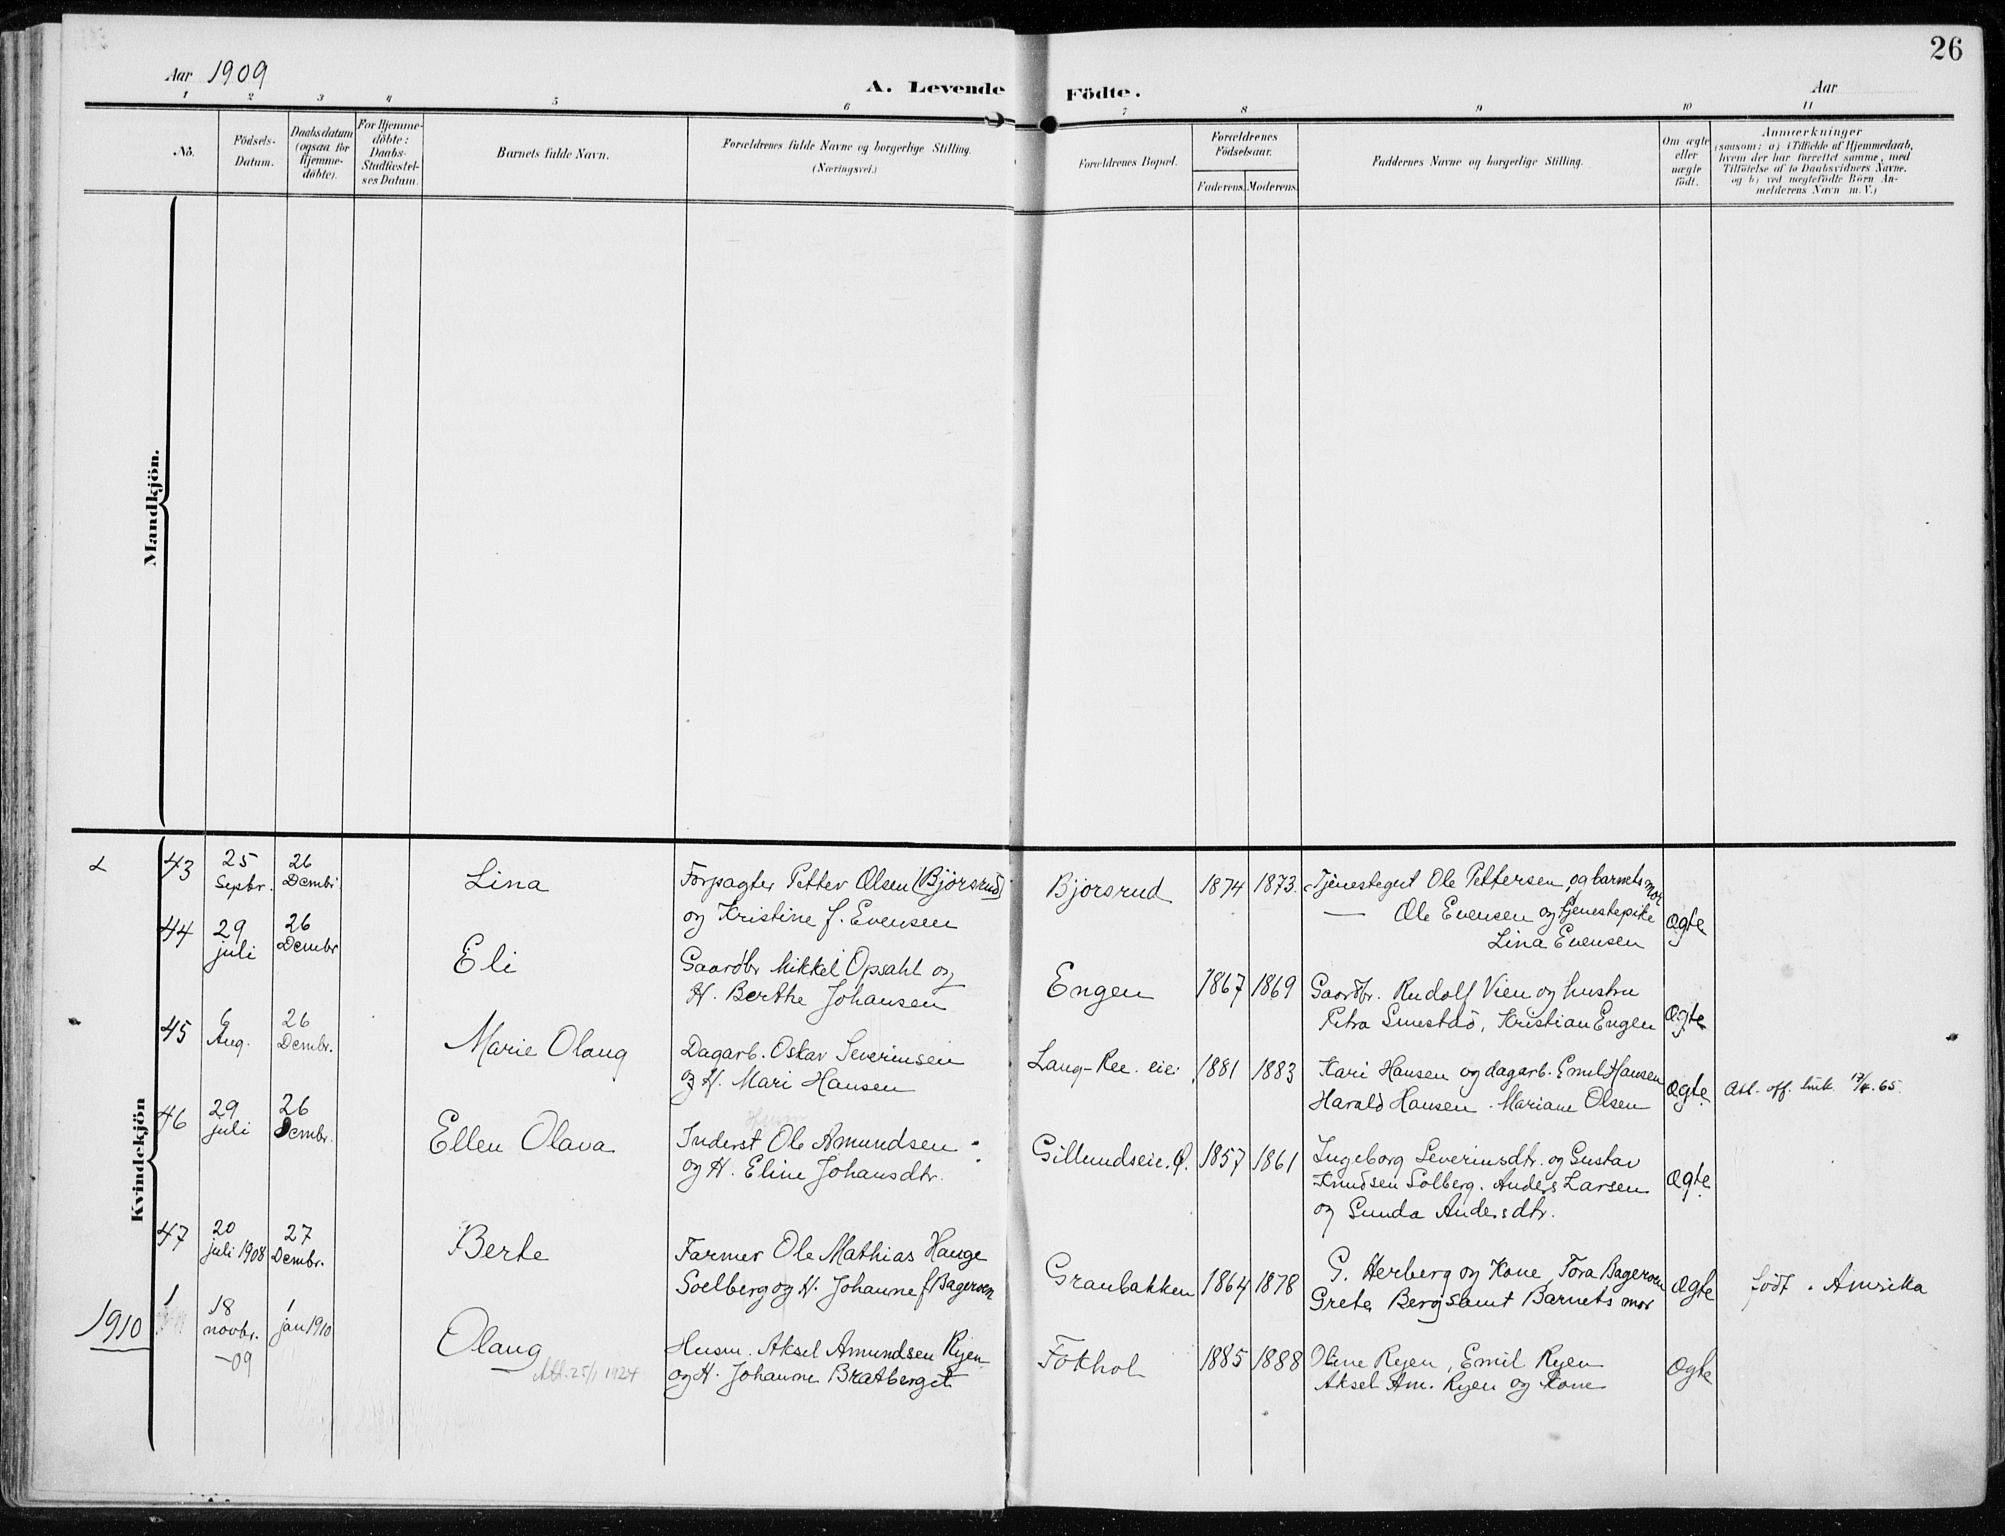 26
Aar 1909
A. Levende
Födte.
Aar
1 2 3 4 5 6 7 8 9 10 11
No.
Födsels-
Datum.
Daabsdatum
(ogsaa for
Hjemme-
döbte).
For Hjemme-
döbte:
Daabs-
Stadfæstel-
ses Datum.
Barnets fulde Navn.
Forældrenes fulde Navne og borgerlige Stilling.
(Næringsvei.)
Forældrenes Bopæl.
Forældrenes
Födselsaar.
Faderens.
Moderens.
Faddernes Navne og borgerlige Stilling.
Om ægte
eller
uægte
födt.
Anmærkninger
(saasom: a) i Tilfælde af Hjemmedaab,
hvem der har forrettet samme, med
Tilföielse af to Daabsvidners Navne.
og b) ved uægtefödte Börn An-
melderens Navn m. V.)
Mandkjön.
Kvindekjön
43
25
Sepbr.
26
Dembr
Lina
Forpagter Petter Olsen (Bjørsrud)
og Kristine f. Evensen
Bjørsrud
1874
1873.
Tjenestegut Ole Pettersen, og barnets mor
— Ole Evensen og tjenestepike
Lina Evensen
Ægte
44
29
juli
26
Dembr
Eli
Gaardbr Mikkel Opsahl og
H. Berthe Johansen
Engen
1867
1869
Gaardbr. Rudolf Vien og hustru
Petra Smestad, Kristian Engen
Ægte
45
6
Aug.
26
Dembr.
Marie Olaug
Dagarb. Oskar Severinsen
og H. Mari Hansen
Lang-Ree. eie
1881
1883
Kari Hansen og dagarb. Emil Hansen
Harald Hansen. Mariane Olsen
Ægte
Att. off. bruk 65.
46
29
juli
26
Dembr.
Ellen Olava
Inderst Ole Amundsen
og H. Eline Johansdtr.
Gillundseie. Ø.
1857
1861
Ingeborg Severinsdtr. og Gustav
Knudsen Solberg. Anders Larsen
og Gunda Andersdtr.
Ægte
47
20
juli 1908
27
Dembr.
Berte
Farmer Ole Mathias Hauge
Soelberg og H. Johanne f. Bagerøen
Granbakken
1864
1878
G. Herberg og Kone, Tora Bagerøen
Grete Berg samt Barnets mor
Ægte
født i Amrikka
1910
1
18
novbr.
-09
1
jan 1910
Olaug
Att. 25/1 1924
Husm. Aksel Amundsen Ryen
og H. Johanne Bratberget
Fokhol
1885
1888
Oline Ryen, Emil Ryen
Aksel Am. Ryen og Kone
Ægte